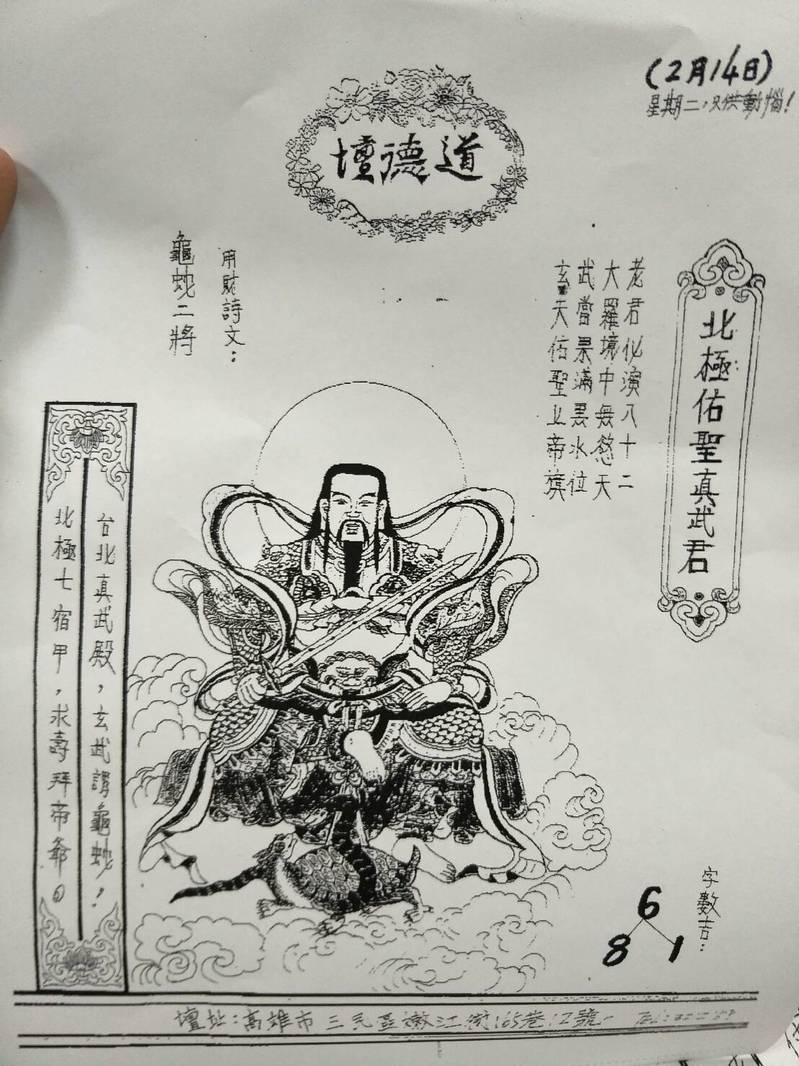 (2月14日)
星期二,只供動惱!
道德壇
北極佑聖真武君
老君化演八十二
大羅境中無慾天
武當果滿黑水位
玄天佑聖上帝旗
用財詩文:
龜蛇二將
台北真武殿,玄武謂龜蛇!
北極七宿甲,求壽拜帝爺。
字數吉:
6
8 1
壇址:高雄市三民區嫩江街165巷12號